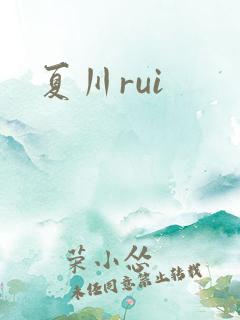 夏川rui
荣小怂
未经同意禁止转载